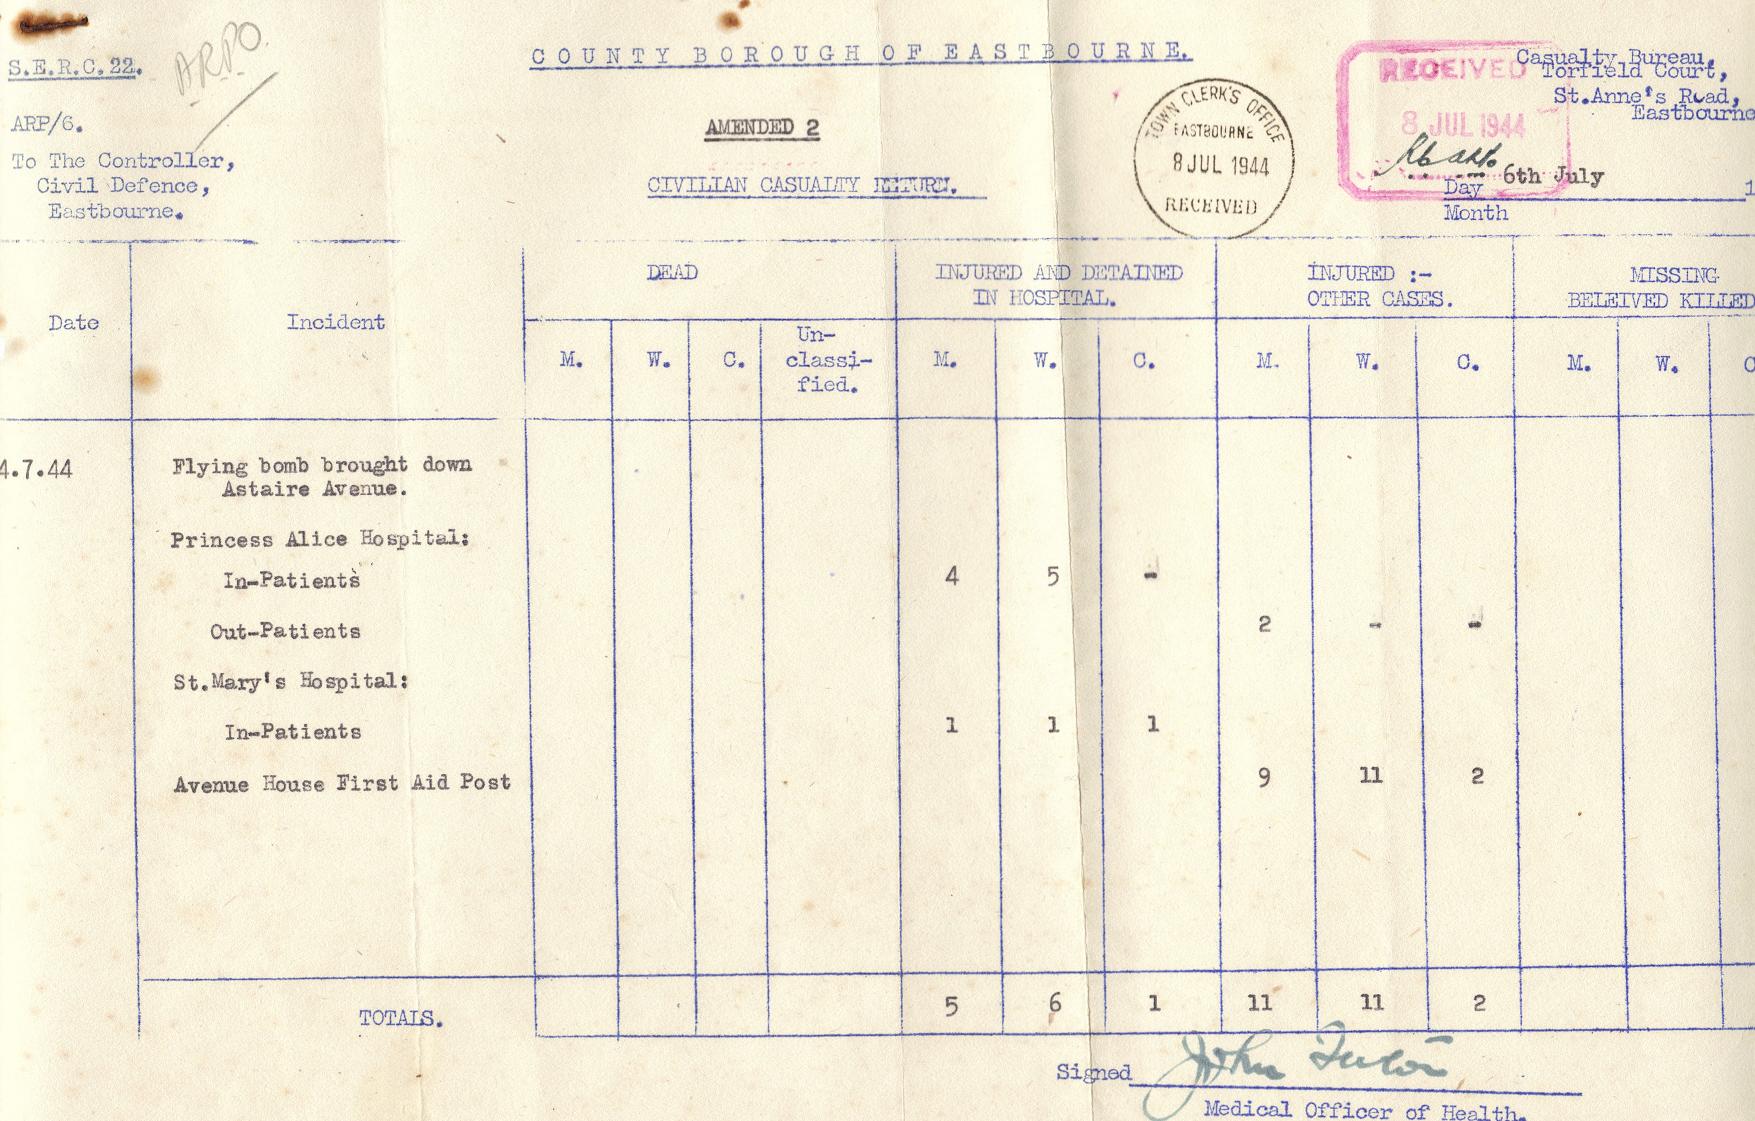 S.E.R.C.22.
A.R.P.O.
COUNTY BOROUGH OF EASTBOURNE.
Casualty Bureau,
Torfield Court,
St.Anne's Road,
Eastbourne
RECEIVED
8 JUL 1944
ARP/6.
To The Controller,
Civil Defence,
Eastbourne.
AMENDED 2
CIVILIAN CASUALTY RETURN.
TOWN CLERK'S OFFICE
EASTBOURNE
8 JUL 1944
RECEIVED
Day 6th July 1
Month
Date Incident DEAD INJURED AND DETAINED IN HOSPITAL. INJURED :- OTHER CASES. MISSING BELEIVED KILLED
M. W. C. Un-classi-fied. M. W. C. M. W. C. M. W. C
4.7.44 Flying bomb brought down
Astaire Avenue.
Princess Alice Hospital:
In-Patients 4 5 -
Out-Patients 2 - -
St.Mary's Hospital:
In-Patients 1 1 1
Avenue House First Aid Post 9 11 2
TOTALS. 5 6 1 11 11 2
Signed John
Medical Officer of Health.